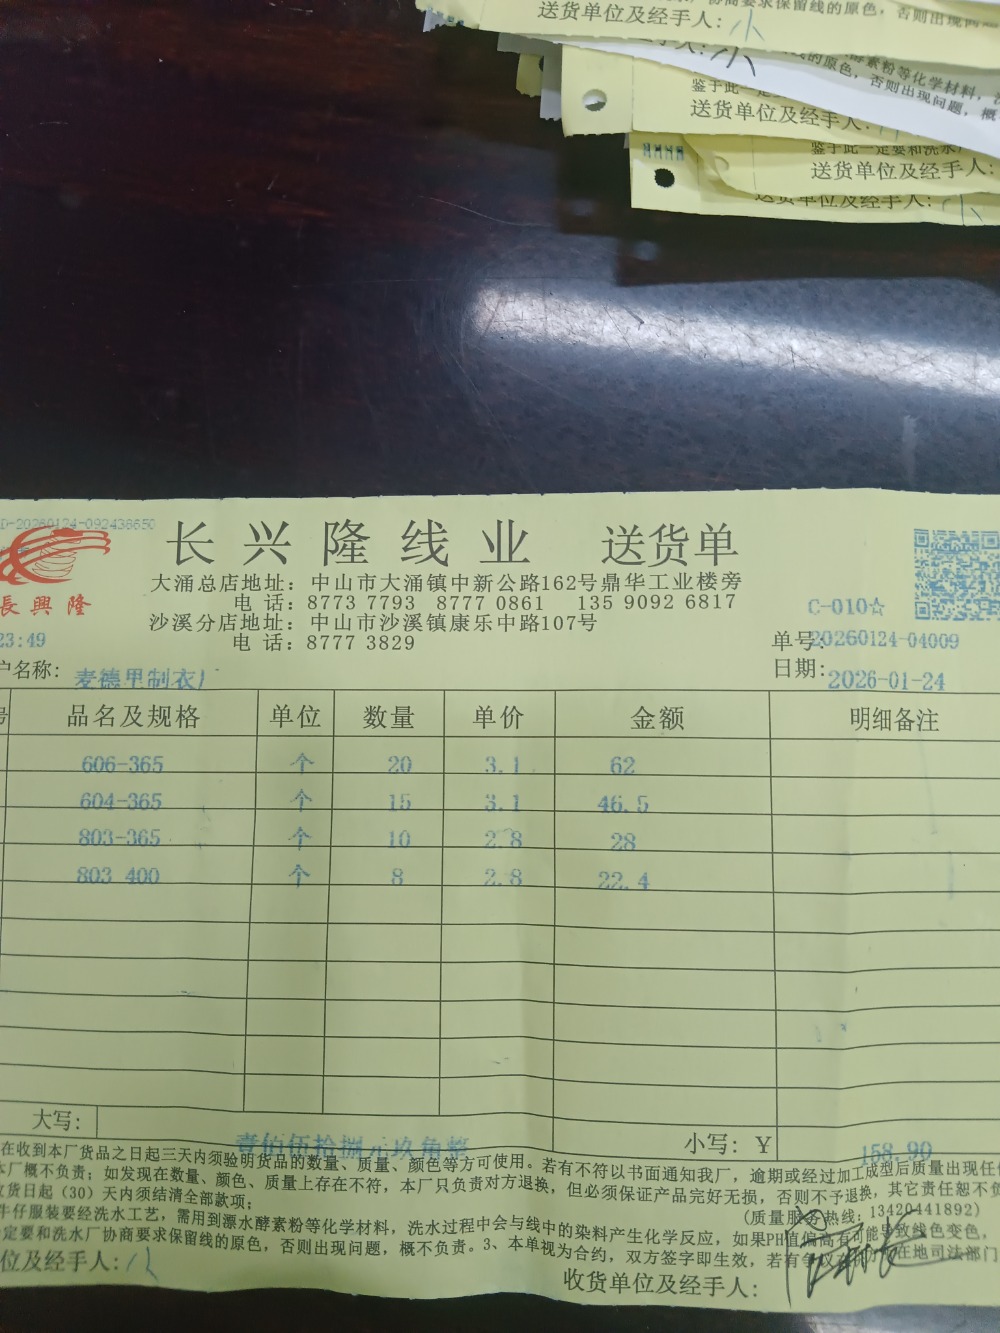 协商要求保留线的原色，否则出现问
送货单位及经手人：小
酵素粉等化学材料，
线的原色，否则出现问题，概
鉴于此一定
送货单位及经手人：
鉴于此一定要和洗水厂
送货单位及经手人：
送货单位及经手人：小
D-20260124-092436650
长兴隆线业 送货单
長興隆
大涌总店地址：中山市大涌镇中新公路162号鼎华工业楼旁
电 话：8773 7793 8777 0861 135 9092 6817
沙溪分店地址：中山市沙溪镇康乐中路107号
电 话：8777 3829
C-010☆
23:49
单号：20260124-04009
户名称：麦德里制衣厂
日期：2026-01-24
号 品名及规格 单位 数量 单价 金额 明细备注
606-365 个 20 3.1 62
604-365 个 15 3.1 46.5
803-365 个 10 2.8 28
803-400 个 8 2.8 22.4
大写：壹佰伍拾捌元玖角整 小写：Y 158.90
在收到本厂货品之日起三天内须验明货品的数量、质量、颜色等方可使用。若有不符以书面通知我厂，逾期或经过加工成型后质量出现任何
本厂概不负责；如发现在数量、颜色、质量上存在不符，本厂只负责对方退换，但必须保证产品完好无损，否则不予退换，其它责任恕不负
货日起（30）天内须结清全部款项；
(质量服务热线：13420441892)
牛仔服装要经洗水工艺，需用到漂水酵素粉等化学材料，洗水过程中会与线中的染料产生化学反应，如果PH值偏高有可能导致线色变色，
定要和洗水厂协商要求保留线的原色，否则出现问题，概不负责。3、本单视为合约，双方签字即生效，若有争议在我方所在地司法部门
位及经手人：小
收货单位及经手人：